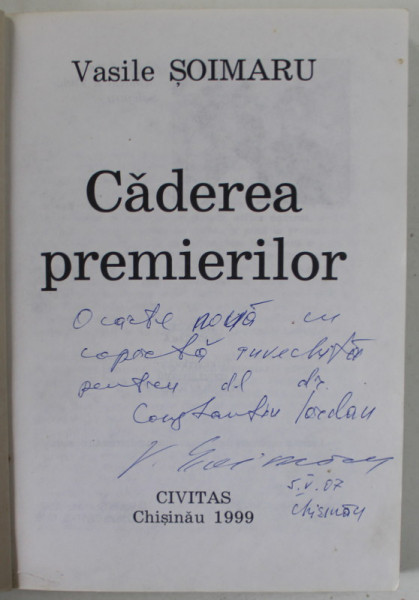 Vasile ȘOIMARU
Căderea
premierilor
O carte nouă cu
copertă învechită
pentru dl dr.
Constantin Iordan
V. Șoimaru
5.V.07
Chișinău
CIVITAS
Chișinău 1999